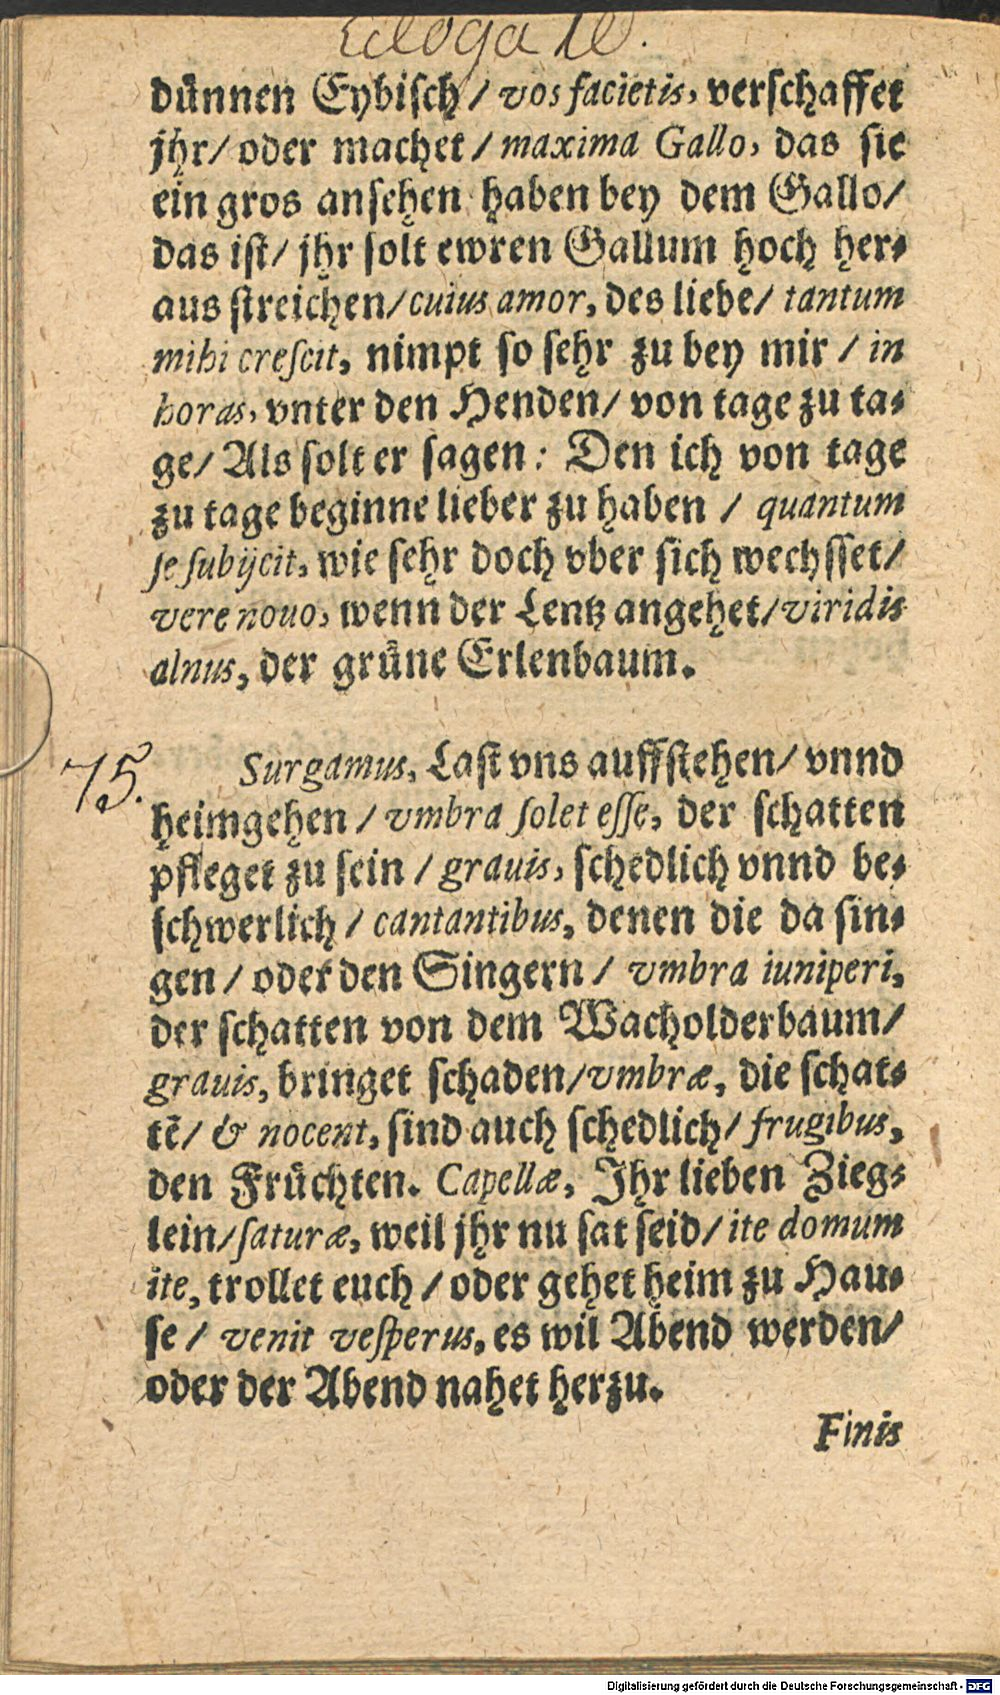 Ecloga 10.
duͤnnen Eybiſch/ vos facietis, verſchaffet
jhr/ oder machet/ maxima Gallo, das ſie
ein gros anſehen haben bey dem Gallo/
das iſt/ jhr ſolt ewren Gallum hoch her⸗
aus ſtreichen/ cuius amor, des liebe/ tantum
mihi creſcit, nimpt ſo ſehr zu bey mir / in
horas, vnter den Henden/ von tage zu ta⸗
ge/ Als ſolt er ſagen: Den ich von tage
zu tage beginne lieber zu haben / quantum
ſe ſubijcit, wie ſehr doch vber ſich wechſſet/
vere nouo, wenn der Lentz angehet/ viridis
alnus, der gruͤne Erlenbaum.
75.
Surgamus, Laſt vns auffſtehen/ vnnd
heimgehen / vmbra ſolet eſſe, der ſchatten
pfleget zu ſein / grauis, ſchedlich vnnd be⸗
ſchwerlich / cantantibus, denen die da ſin⸗
gen / oder den Singern / vmbra iuniperi,
der ſchatten von dem Wacholderbaum/
grauis, bringet ſchaden/ vmbræ, die ſchat⸗
tē/ & nocent, ſind auch ſchedlich/ frugibus,
den Fruͤchten. Capellæ, Jhr lieben Zieg⸗
lein/ ſaturæ, weil jhr nu ſat ſeid/ ite domum
ite, trollet euch / oder gehet heim zu Hau⸗
ſe / venit veſperus, es wil Abend werden/
oder der Abend nahet herzu.
Finis
Digitalisierung gefördert durch die Deutsche Forschungsgemeinschaft - DFG